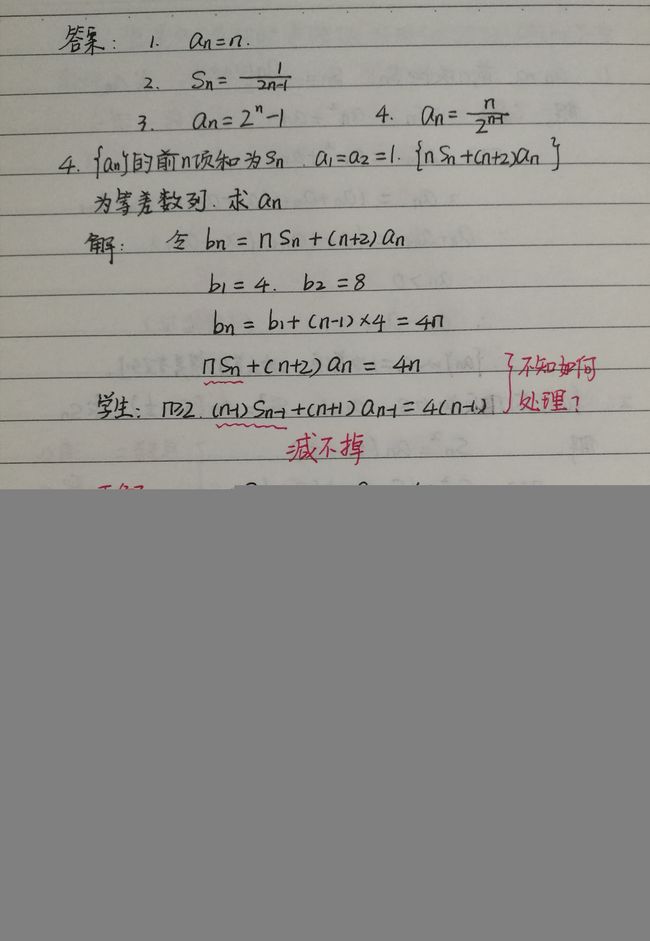 答案: 1. an=n.
2. Sn= 1/(2n-1)
3. an=2^n-1 4. an= n/2^(n-1)
4. {an}的前n项和为Sn. a1=a2=1. {nSn+(n+2)an}
为等差数列. 求an
解: 令 bn = nSn+(n+2)an
b1=4. b2=8
bn = b1+(n-1)×4 = 4n
nSn+(n+2)an = 4n
学生: n≥2. (n-1)Sn-1+(n+1)an-1=4(n-1)
不知如何
处理?
减不掉